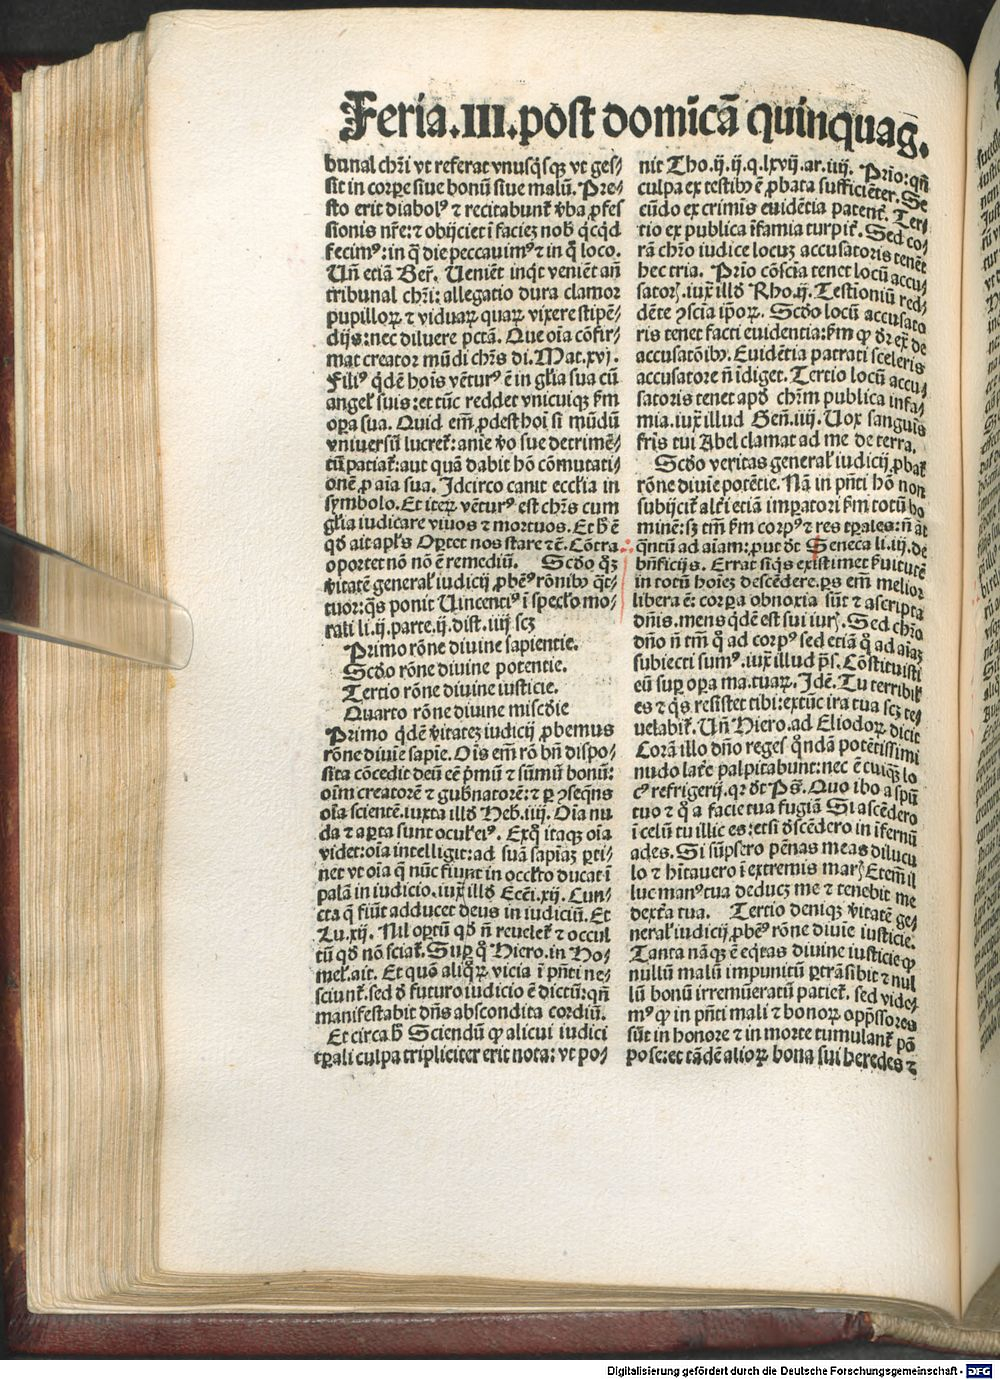 Feria.III.post domīcā quinquag.
bunal chr̄i vt referat vnusq̄sq̨ vt ges⸗
sit in corꝑe siue bonū siue malū. Pre⸗
sto erit diabolꝰ ⁊ recitabunt̄ v̄ba ꝓfes
sionis nr̄e: ⁊ obijciet ī facieꝫ nob̄ q̇cq̇d
fecimꝰ: in q̄ die peccauimꝰ ⁊ in q̊ loco.
Un̄ etiā Ber̄. Ueniēt inq̇t veniēt an̄
tribunal chr̄i: allegatio dura clamor
pupilloꝝ ⁊ viduaꝝ quaꝝ vixere stipē⸗
dijs: nec diluere pctā. Que oīa cōfir⸗
mat creator mūdi chr̄s di. Mat.xvj.
Filiꝰ q̇dē hoīs vēturꝰ ē in gl̄ia sua cū
angel̄ suis: et tūc reddet vnicuiq̨ ẜm
oꝑa sua. Quid em̄ ꝓdest hoī si mūdū
vniuersū lucret̄: anīe v̄o sue detrimē⸗
tū patiat̄: aut quā dabit hō cōmutati⸗
onē ꝓ aīa sua. Idcirco canit eccl̄ia in
symbolo. Et iteꝝ vēturꝰ est chr̄s cum
gl̄ia iudicare viuos ⁊ mortuos. Et h̄ ē
qd̄ ait apl̄s Oꝑtet nos stare ⁊c̄. Cōtra
oportet nō nō ē remediū. Scd̄o q̇ꝫ
v̄itatē general̄ iudicij ꝓbēꝰ rōnibꝰ q̇t⸗
tuor: q̇s ponit Uincentiꝰ ī specl̄o mo⸗
rali li.ij.parte.ij.dist.iiij scꝫ
Primo rōne diuine sapientie.
Scd̄o rōne diuine potentie.
Tertio rōne diuine iusticie.
Quarto rōne diuine miscd̄ie
Primo q̇dē v̄itateꝫ iudicij ꝓbemus
rōne diuīe sapīe. Oīs em̄ rō bn̄ dispo⸗
sita cōcedit deū eē pͥmū ⁊ sūmū bonū:
oīm creatorē ⁊ gub̄natorē: ⁊ ꝑ ꝯseq̄ns
oīa scientē. iuxta illd̄ Heb̄.iiij. Oīa nu
da ⁊ aꝑta sunt ocul̄ eiꝰ. Exq̊ itaqꝫ oīa
videt: oīa intelligit: ad suā sapīaꝫ ꝑti⸗
net vt oīa q̄ nūc fiunt in occl̄to ducat ī
palā in iudicio. iux̄ illd̄ Ecc̄i.xij. Cun⸗
cta q̄ fiūt adducet deus in iudiciū. Et
Lu.xij. Nil oꝑtū qd̄ n̄ reuelet̄ ⁊ occul
tū qd̄ nō sciat̄. Suꝑ q̊ Hiero. in Ho⸗
mel̄. ait. Et quō aliq̊ꝝ vicia ī pn̄ti ne⸗
sciunt̄. sed d̄ futuro iudicio ē dictū: qn̄
manifestabit dn̄s abscondita cordiū.
Et circa h̄ Sciendū ꝙ alicui iudici
tꝑali culpa tripliciter erit nota: vt po⸗
nit Tho.ij.ij.q.lxvij.ar.iiij. Prīo: qn̄
culpa ex testibꝰ ē ꝓbata sufficiēter. Se
cūdo ex criminis euidētia patent̄. Ter⸗
tio ex publica īfamia turpit̄. Sed co⸗
rā chr̄o iudice locuꝫ accusatoris tenēt
hec tria. Prīo cōscīa tenet locū accu⸗
satoꝝ. iux̄ illd̄ Rho.ij. Testioniū red⸗
dēte ꝯscīa ip̄oꝝ. Scd̄o locū accusato
ris tenet facti euidentia: ẜm ꝙ d̄r ex̄ de
accusatōibꝰ. Euidētia patrati sceleris
accusatore n̄ īdiget. Tertio locū accu⸗
satoris tenet apd̄ chr̄m publica infa⸗
mia. iux̄ illud Gen̄.iiij. Uox sanguīs
fr̄is tui Abel clamat ad me de terra.
Scd̄o veritas general̄ iudicij ꝓbat̄
rōne diuīe potētie. Nā in pn̄ti hō non
subijcit̄ alt̄i etiā imꝑatori ẜm totū ho
minē: sꝫ tm̄ ẜm corpꝰ ⁊ res tꝑales: n̄ āt
q̄ntū ad aīam: ꝓut dt̄ Seneca li.iij.de
bn̄ficijs. Errat siq̇s existimet ẜuitutē
in totū hoīeꝫ descēdere. ꝑs em̄ melior
libera ē: corꝑa obnoxia sūt ⁊ ascripta
dn̄is. mens q̇dē est sui iurꝭ. Sed chr̄o
dn̄o n̄ tm̄ q̊ ad corpꝰ sed etiā q̊ ad aīaꝫ
subiecti sumꝰ. iux̄ illud ps̄. Cōstituisti
eū suꝑ oꝑa ma.tuaꝝ. Idē. Tu terribil̄
es ⁊ q̇s resistet tibi: extūc ira tua scꝫ re⸗
uelabit̄. Un̄ Hiero. ad Eliodoꝝ dicit
Corā illo dn̄o reges q̊ndā potētissimi
nudo lat̄e palpitabunt: nec ē cuiq̨ lo
cꝰ refrigerij. qꝛ dt̄ Ps̄. Quo ibo a spū
tuo ⁊ q̊ a facie tua fugiā Si ascēdero
ī celū tu illic es: etsi d̄scēdero in īfernū
ades. Si sūpsero pēnas meas dilucu
lo ⁊ hītauero ī extremis marꝭ Etem̄ il
luc manꝰ tua deducꝫ me ⁊ tenebit me
dext̄a tua. Tertio deniqꝫ v̄itatē ge⸗
neral̄ iudicij ꝓbēꝰ rōne diuīe iusticie.
Tanta nāqꝫ ē eq̇tas diuine iusticie ꝙ
nullū malū impunitū ꝑtrāsibit ⁊ nul
lū bonū irremūeratū patiet̄. sed vide⸗
mꝰ ꝙ in pn̄ti mali ⁊ bonoꝝ opp̄ssores
sūt in honore ⁊ in morte tumulant̄ pō
pose: et tādē alioꝝ bona sui heredes ⁊
Digitalisierung gefördert durch die Deutsche Forschungsgemeinschaft - DFG